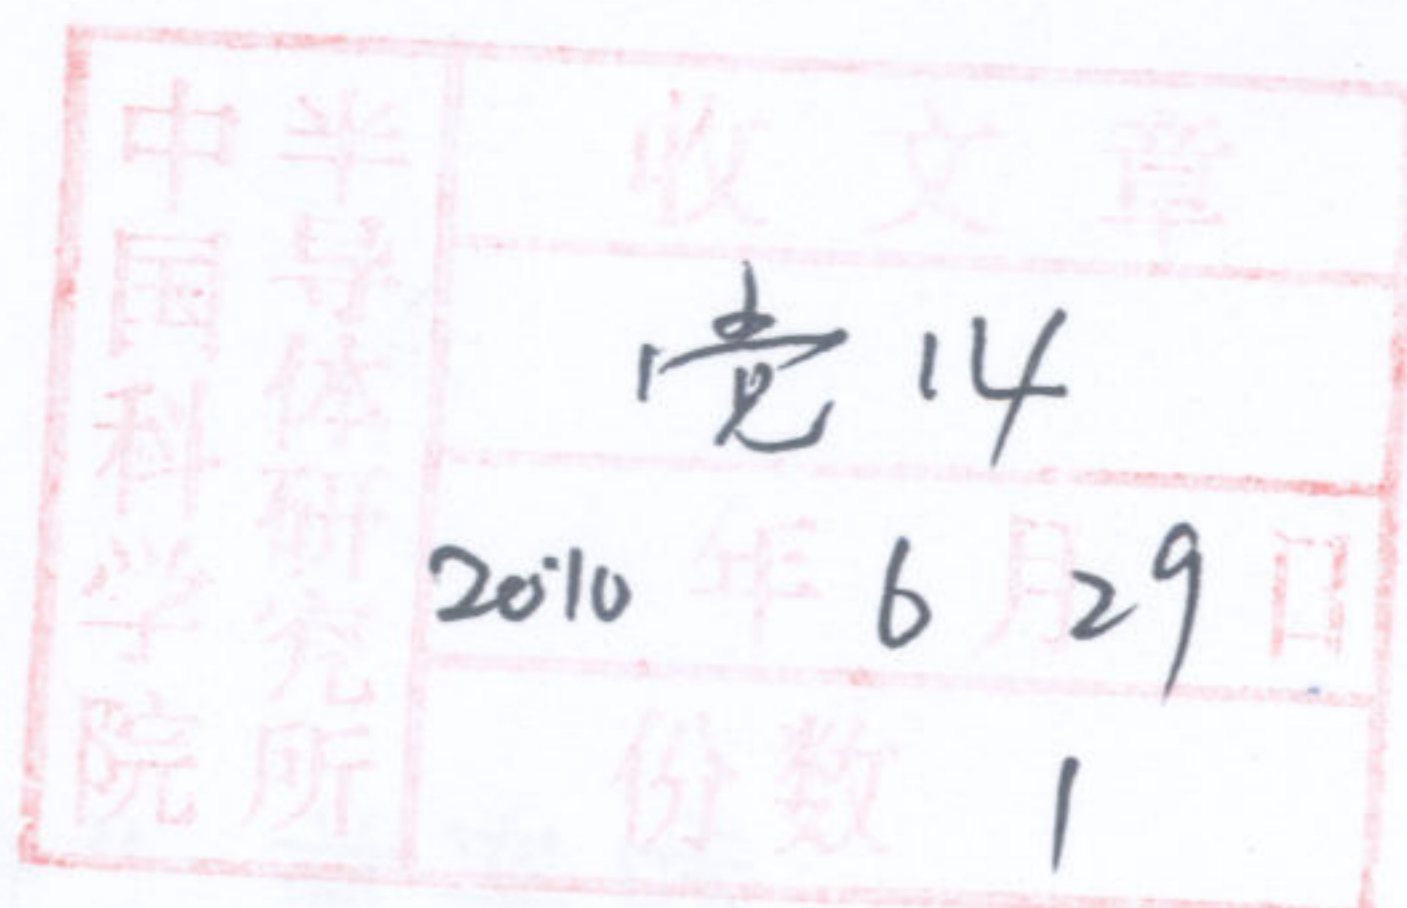 中国科学院
半导体研究所
收文章
党14
2010年6月29日
份数 1